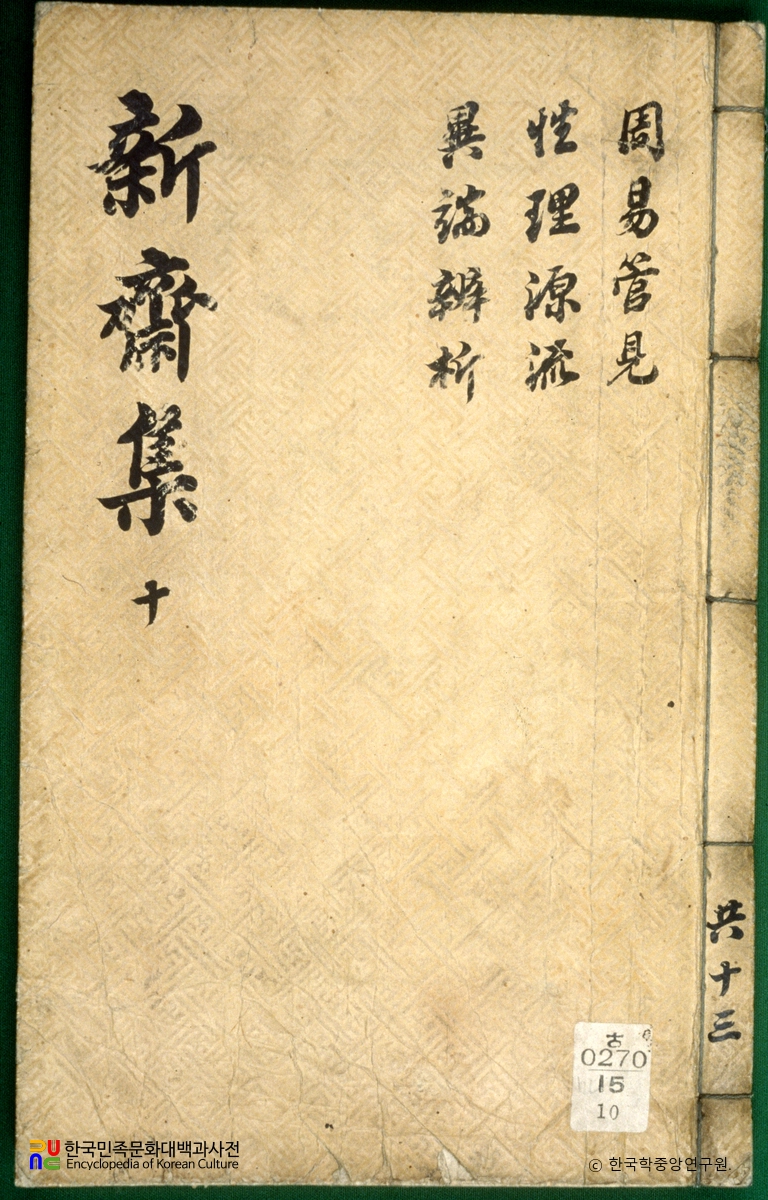 周易管見
性理源流
異端辨析
新齋集 十
共十三
古
0270
15
10
한국민족문화대백과사전
Encyclopedia of Korean Culture
© 한국학중앙연구원